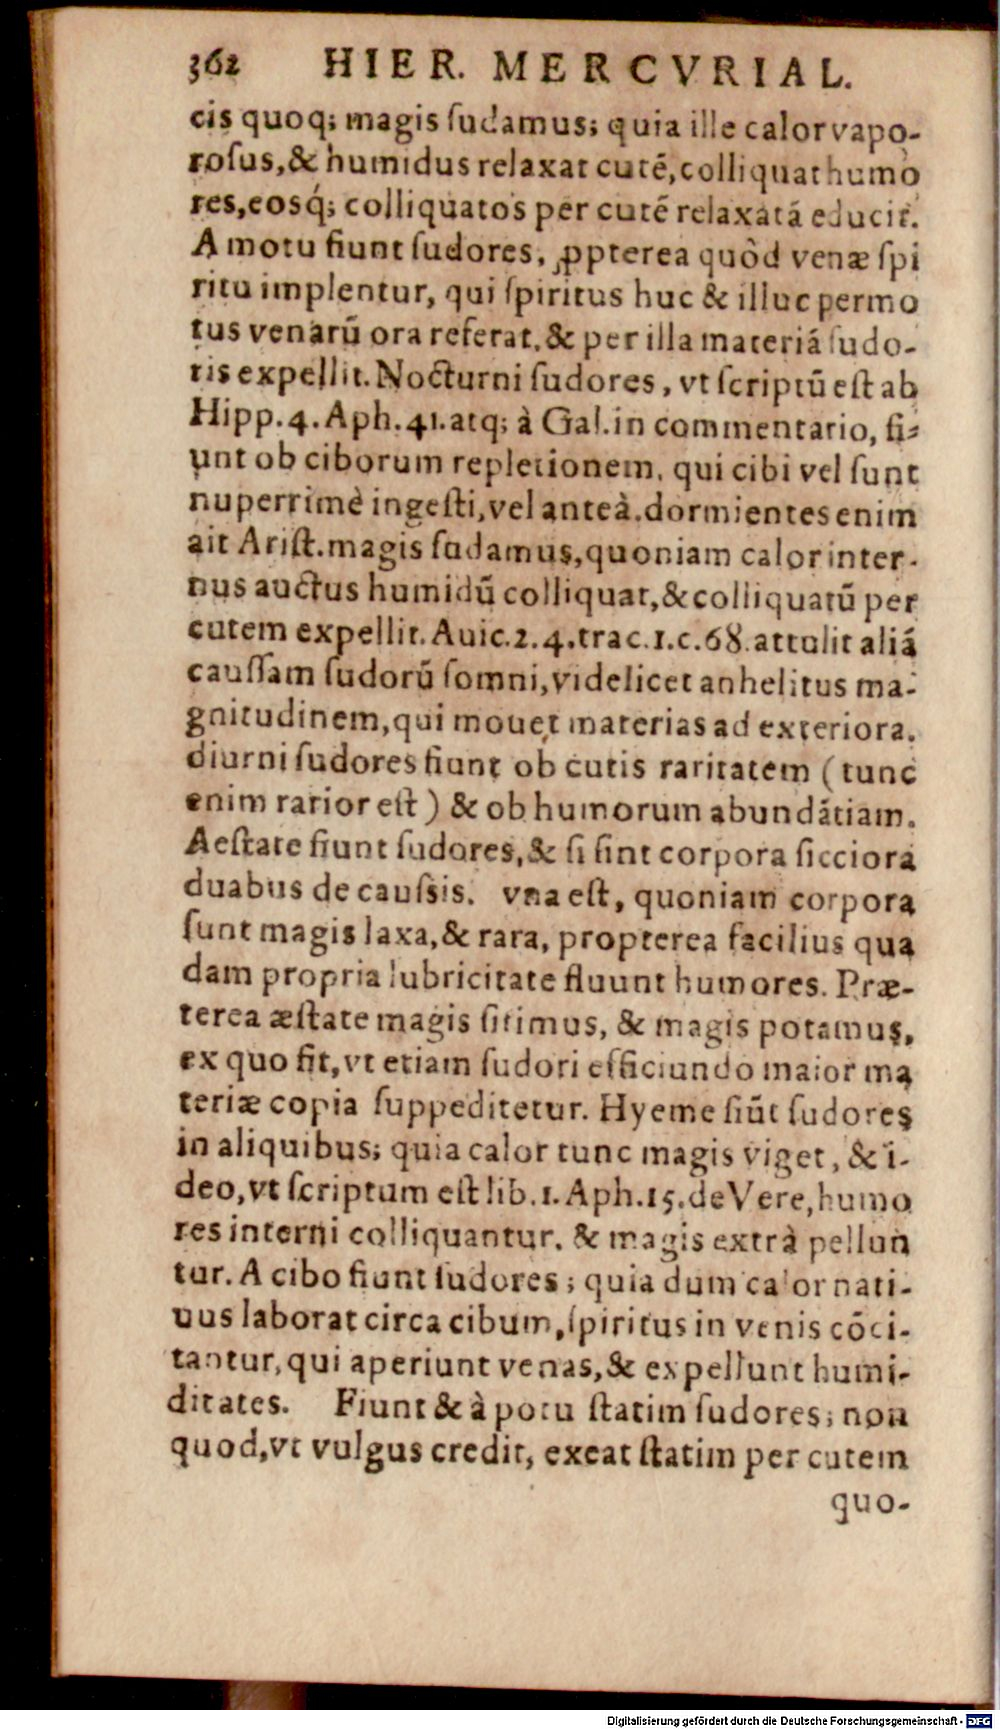 362 HIER. MERCVRIAL.
cis quoq; magis ſudamus; quia ille calor vapo-
roſus, & humidus relaxat cutẽ, colliquat humo
res, eosq́; colliquatos per cutẽ relaxatã educit.
A motu fiunt ſudores, ꝓpterea quòd venæ ſpi
ritu implentur, qui ſpiritus huc & illuc permo
tus venarũ ora referat, & per illa materiã ſudo-
ris expellit. Nocturni ſudores, vt ſcriptũ eſt ab
Hipp. 4. Aph. 41. atq; à Gal. in commentario, fi-
unt ob ciborum repletionem, qui cibi vel ſunt
nuperrimè ingeſti, vel anteà. dormientes enim
ait Ariſt. magis ſudamus, quoniam calor inter-
nus auctus humidũ colliquat, & colliquatũ per
cutem expellit. Auic. 2. 4. trac. 1. c. 68. attulit aliã
cauſſam ſudorũ ſomni, videlicet anhelitus ma-
gnitudinem, qui mouet materias ad exteriora.
diurni ſudores fiunt ob cutis raritatem (tunc
enim rarior eſt) & ob humorum abundãtiam.
Aeſtate fiunt ſudores, & ſi ſint corpora ſicciora
duabus de cauſsis. vna eſt, quoniam corpora
ſunt magis laxa, & rara, propterea facilius qua
dam propria lubricitate fluunt humores. Præ-
terea æſtate magis ſitimus, & magis potamus,
ex quo fit, vt etiam ſudori efficiundo maior ma
teriæ copia ſuppeditetur. Hyeme fiũt ſudores
in aliquibus; quia calor tunc magis viget, & i-
deo, vt ſcriptum eſt lib. 1. Aph. 15. de Vere, humo
res interni colliquantur. & magis extrà pellun
tur. A cibo fiunt ſudores; quia dum calor nati-
uus laborat circa cibum, ſpiritus in venis cõci-
tantur, qui aperiunt venas, & expellunt humi-
ditates. Fiunt & à potu ſtatim ſudores; non
quod, vt vulgus credit, exeat ſtatim per cutem
quo-
Digitalisierung gefördert durch die Deutsche Forschungsgemeinschaft - DFG